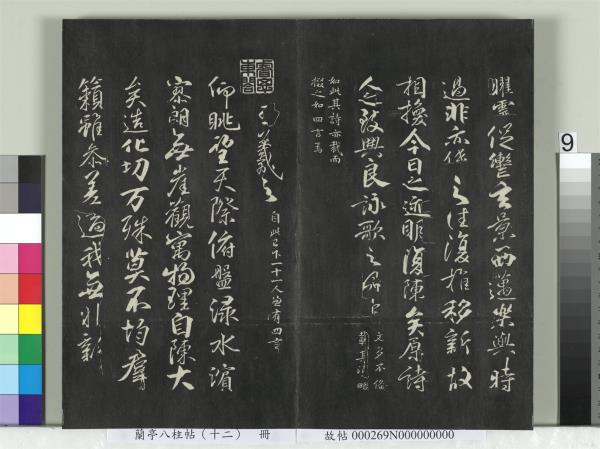 曜靈促轡急景西邁樂與時
過悲亦係之往復推移新故
相換今日之迹明復陳矣原詩
人之致興良詠歌之有由
文多不備
載其大略
如此其詩亦裁而
綴之如四言焉
王羲之 自此已下一十一人並有四言
仰眺望天際俯盤淥水濱
寥朗無崖觀寓物理自陳大
矣造化功万殊莫不均群
籟雖參差適我無非新
9
蘭亭八柱帖（十二） 冊
故帖 000269N000000000